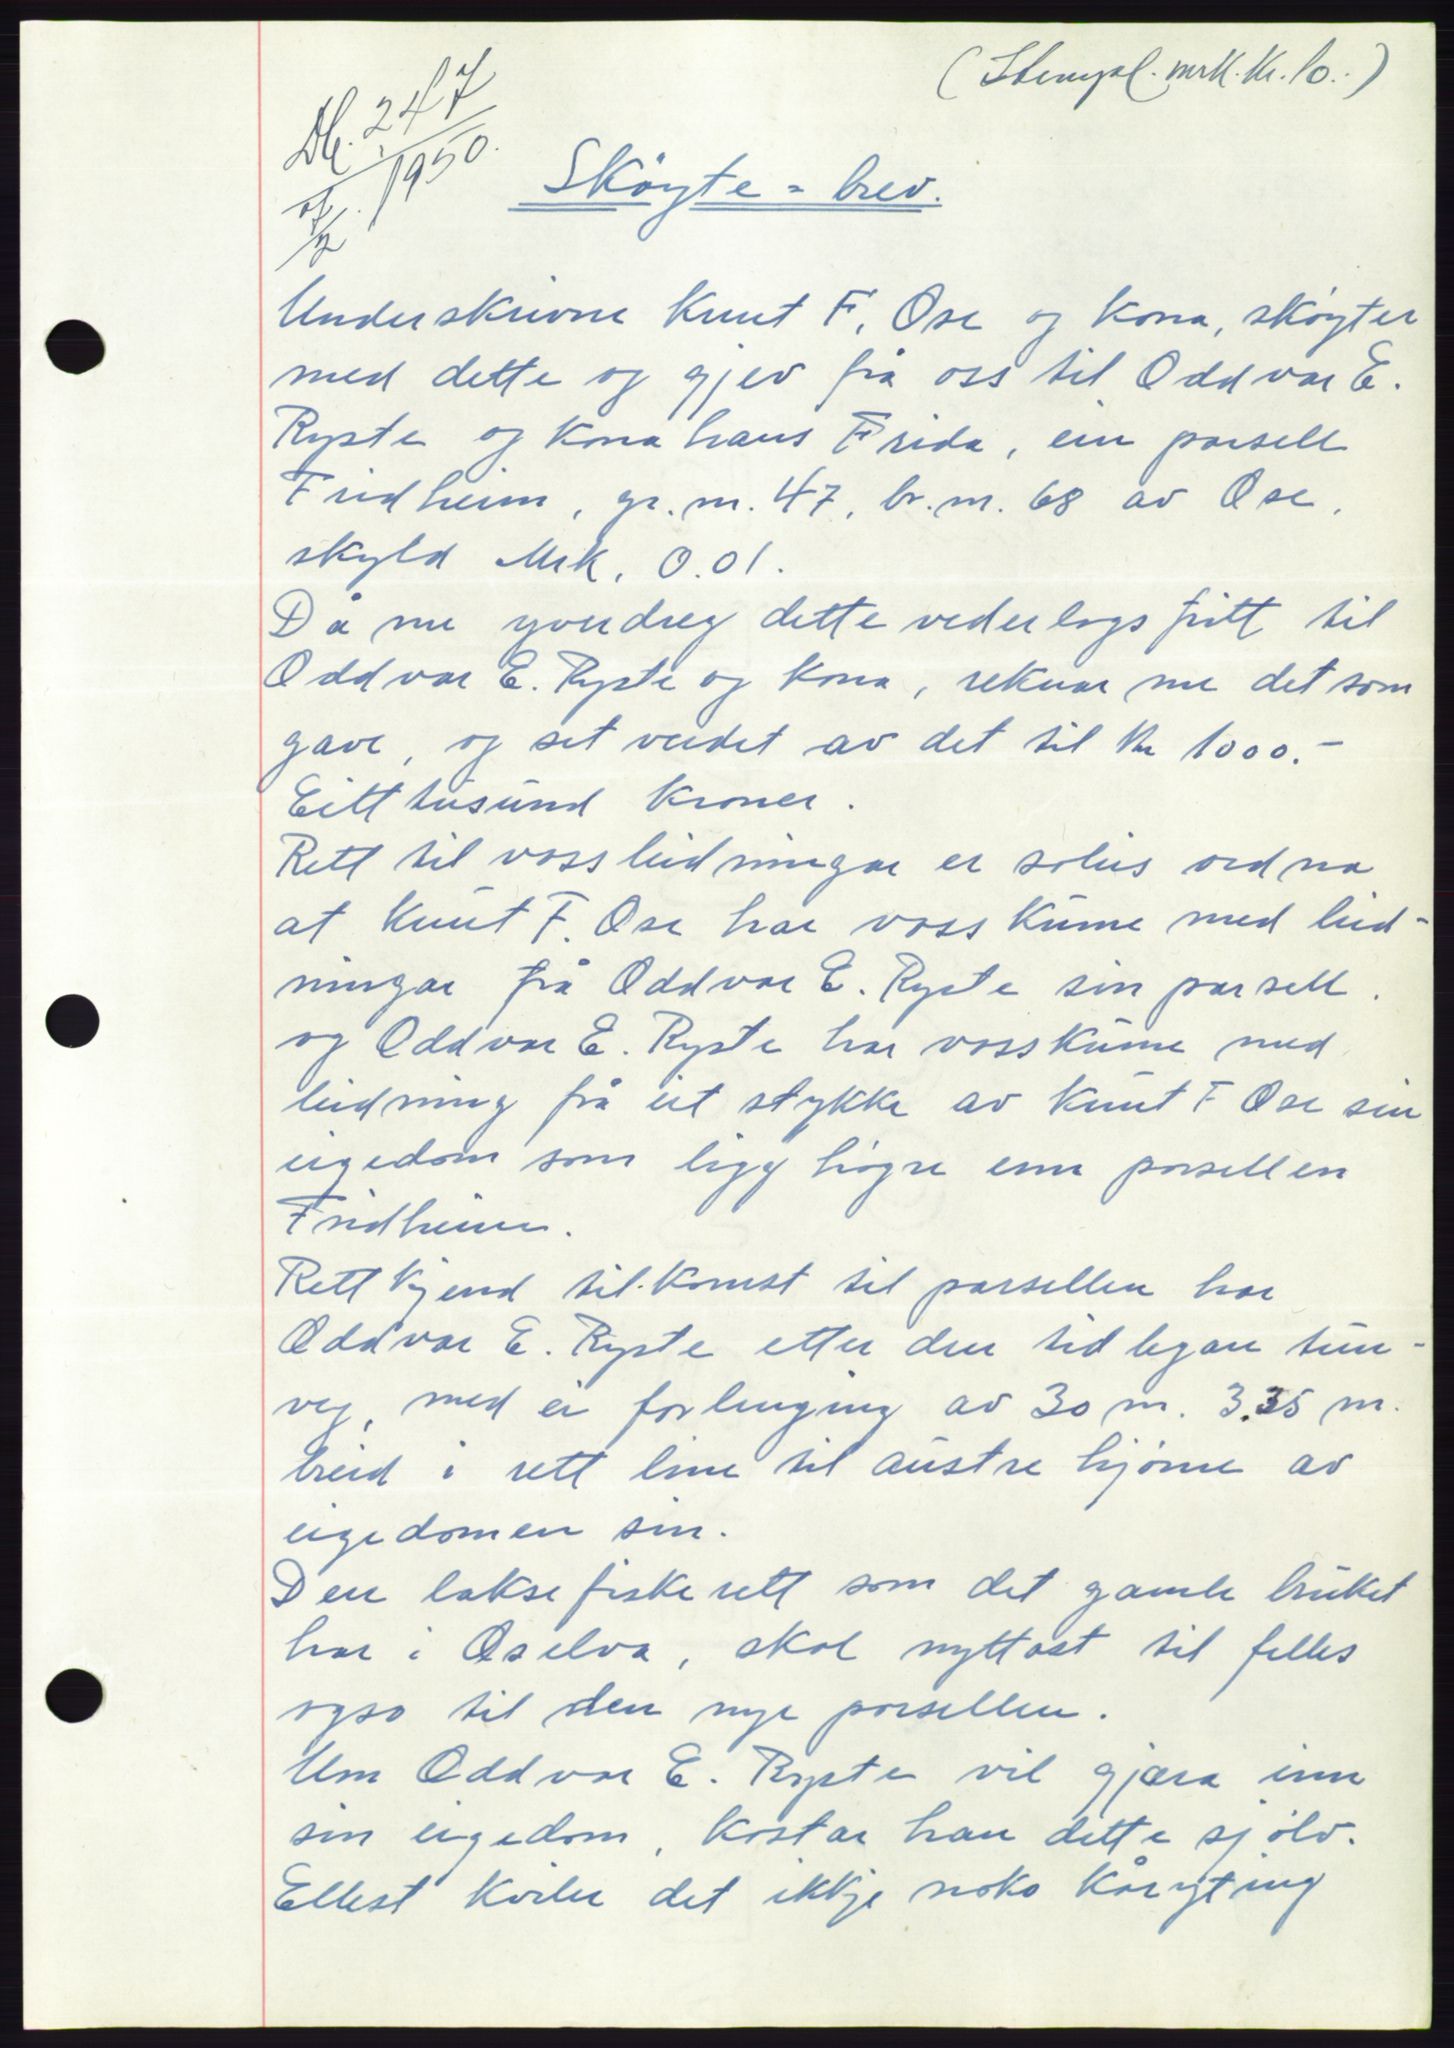 (Stempel. mrk. kr. 10..)
Db. 247/1950.
7/2
Sköyte = brev.
Underskrivne Knut F. Ose og kona, sköyter
med dette og gjev frå oss til Oddvar E.
Ryste og kona hans Frida, ein parsell
Fridheim, gr.nr. 47, br.nr. 68 av Ose,
skyld Mrk. 0.01.
Då me yverdreg dette vederlagsfritt til
Oddvar E. Ryste og kona, reknar me det som
gave, og set verdet av det til Kr 1000.-
Eitt tusund kroner.
Rett til vassleidningar er soleis ordna
at Knut F. Ose har vasskume med leid-
ningar frå Oddvar E. Ryste sin parsell.
og Oddvar E. Ryste har vasskume med
leidning frå eit stykke av Knut F Ose sin
eigedom som ligg högre enn parsellen
Fridheim.
Rettkjend tilkomst til parsellen har
Oddvar E. Ryste etter den tidlegare tun-
veg, med ei forlenging av 30 m. 3.35 m.
breid i rett line til austre hjörne av
eigedomen sin.
Den laksefiskerett som det gamle bruket
har i Oselva, skal nyttast til felles
ogso til den nye parsellen.
Um Oddvar E. Ryste vil gjæra inn
sin eigedom, kostar han dette sjölv.
Ellest kviler det ikkje noko kåryting